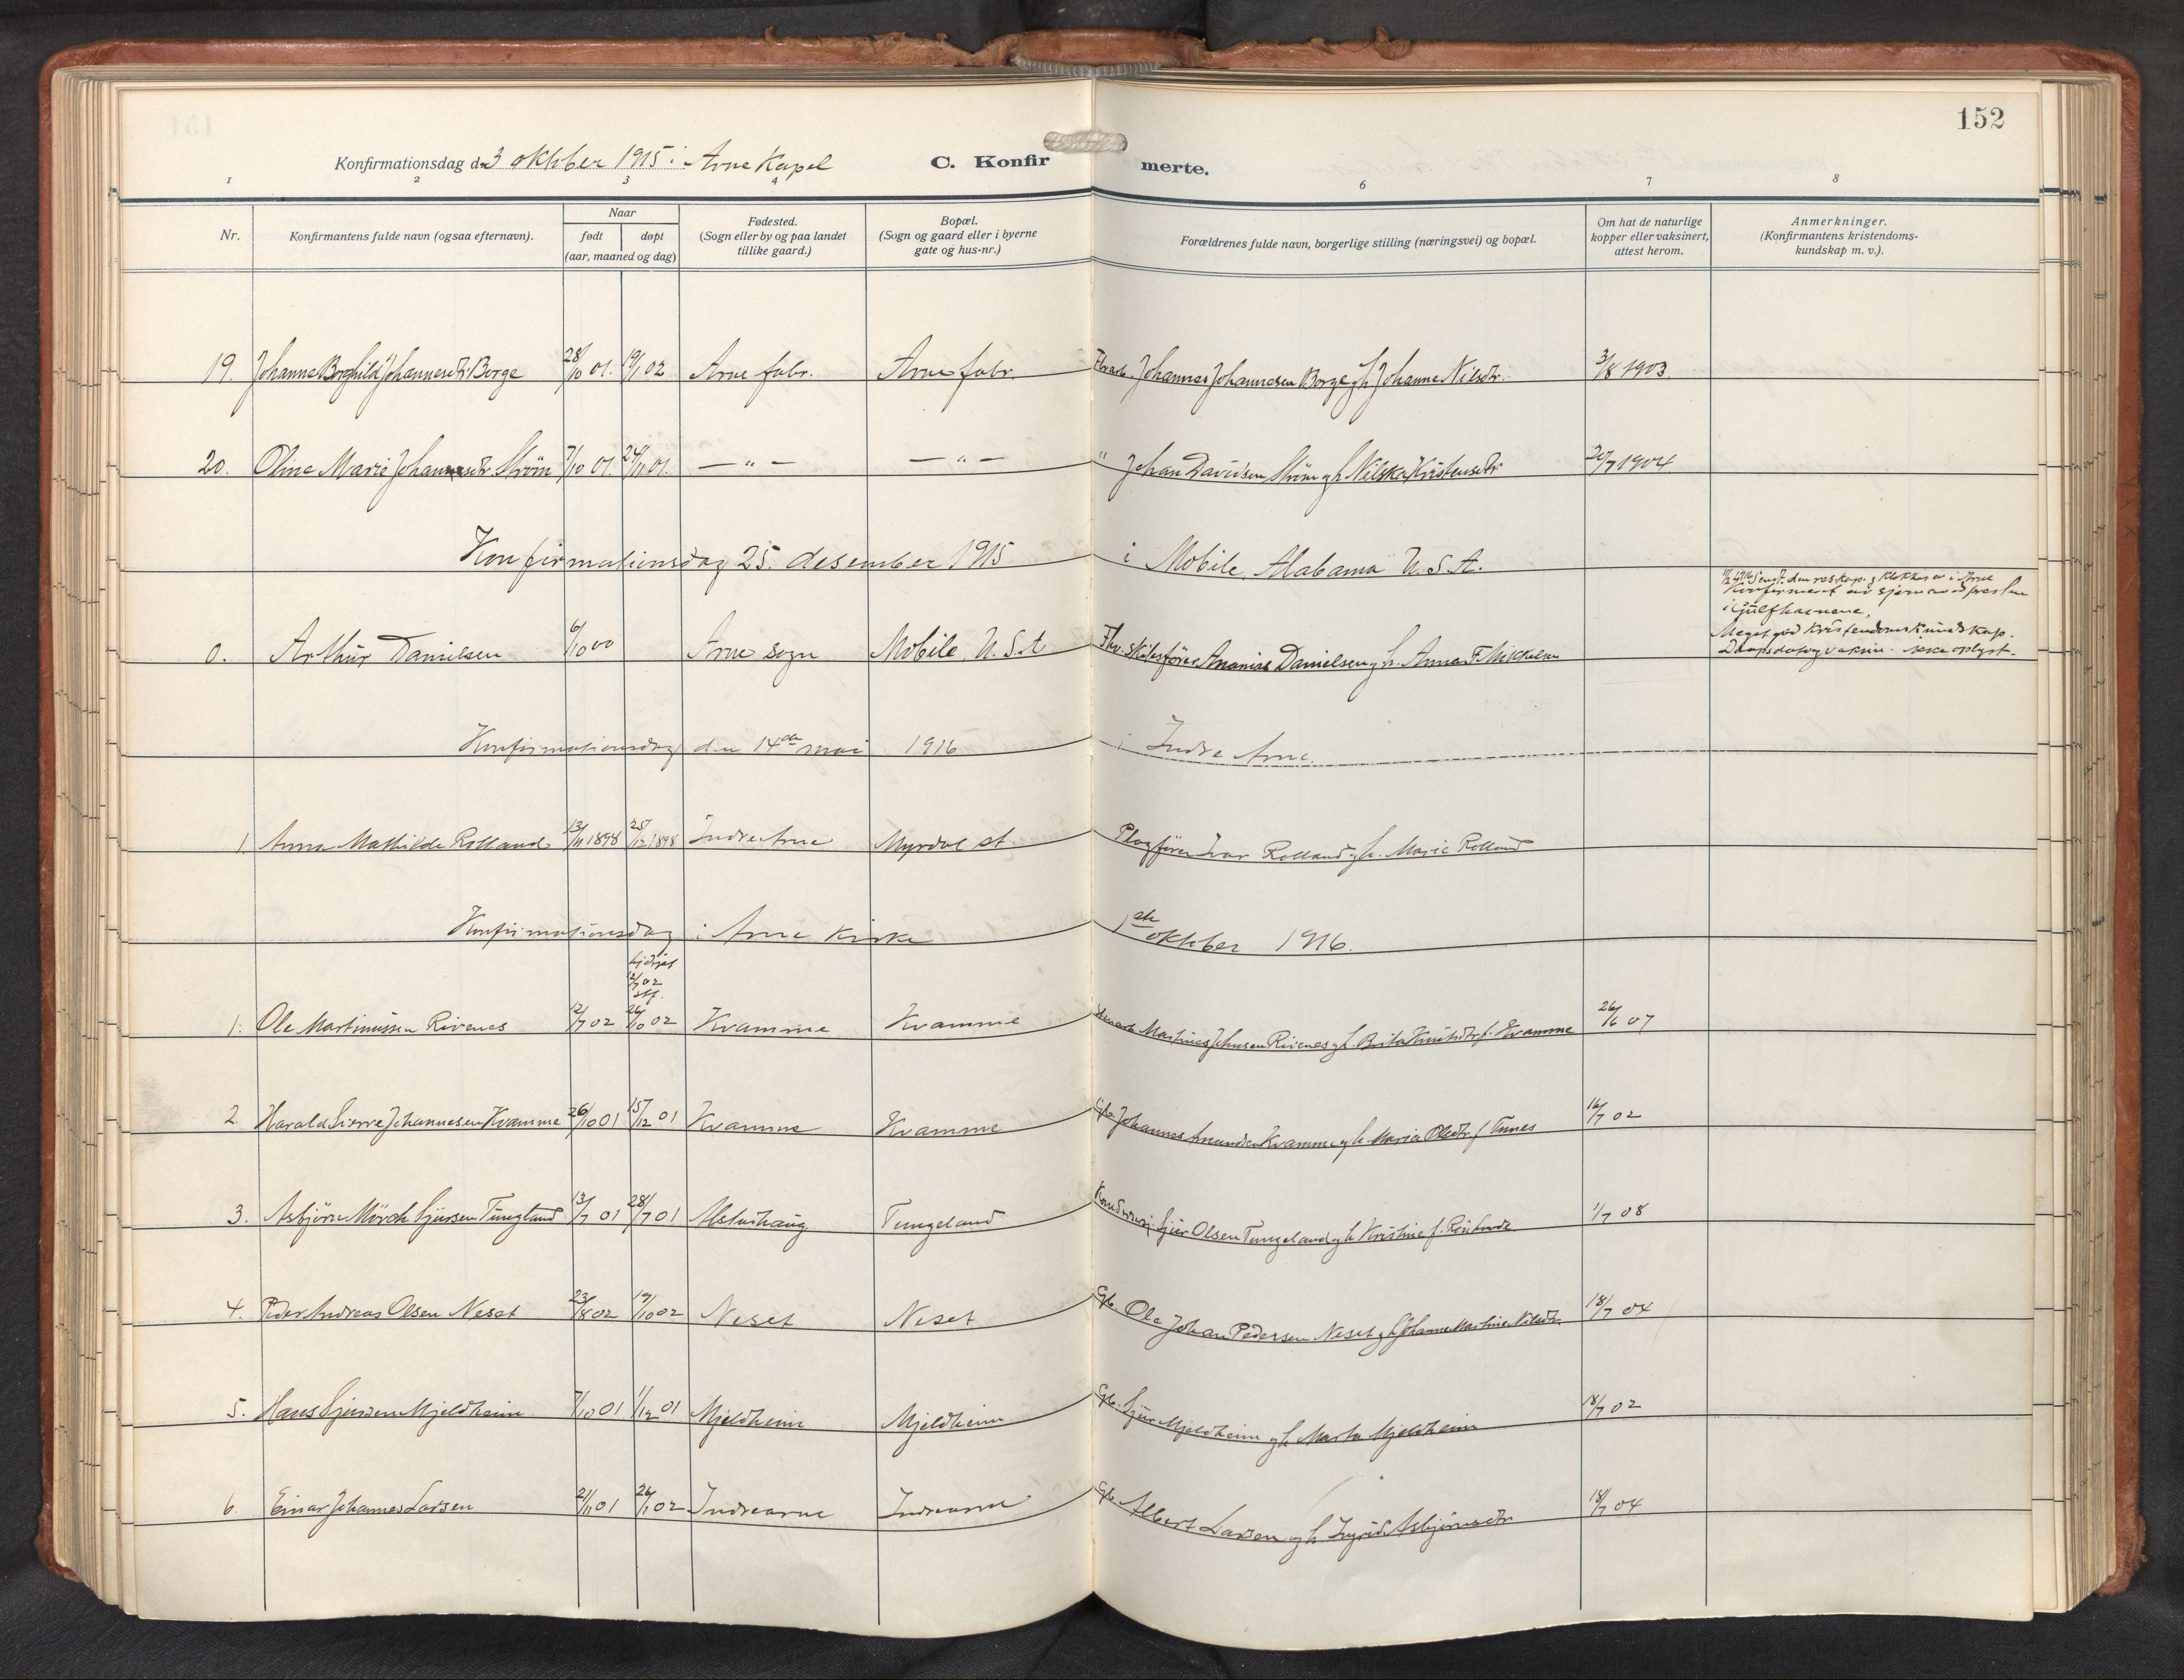 152
Konfirmationsdag d. 3 oktober 1915 i Arne Kapel C. Konfirmerte.
1 2 3 4 6 7 8
Nr. Konfirmantens fulde navn (ogsaa efternavn). Naar født døpt (aar, maaned og dag) Fødested. (Sogn eller by og paa landet tillike gaard.) Bopæl. (Sogn og gaard eller i byerne gate og hus-nr.) Forældrenes fulde navn, borgerlige stilling (næringsvei) og bopæl. Om hat de naturlige kopper eller vaksinert, attest herom. Anmerkninger. (Konfirmantens kristendomskundskap m. v.).
19. Johanne Borghild Johannesdtr. Borge 28/10 01. 19/1 02 Arne fabr. Arne fabr. Johannes Johannesen Borge og h. Johanne Nilsdtr. 3/8 1903
20. Oline Marie Johannesdtr. Strøm 7/10 01. 24/11 01. — " — — " — " Johan Davidsen Strøm og h. Nilska Kristensdtr 20/7 1904
Konfirmationsdag 25. desember 1915 i Mobile, Alabama U.S.A.
Konfirmert av sjømandspresten
i Gulfhavnene.
Meget god Kristendomskundskap.
0. Arthur Danielsen 6/10 00 Arne sogn Mobile, U.S.A Fhv. Ananias Danielsen og h. Anna F. Mikkelsen Daapsdato og vaksin. ikke oplyst.
Konfirmationsdag den 14de mai 1916 i Indre Arne.
1. Anna Mathilde Rolland 13/11 1898 25/12 1898 Indre Arne Myrdal st. Ivar Rolland og h. Marie Rolland
Konfirmationsdag i Arne Kirke 1ste oktober 1916.
hjdøpt
12/7 02
stf.
1. Ole Martinussen Rivenes 12/7 02 26/10 02 Kvamme Kvamme Martines Johnsen Rivenes og h. Brita Knutsdtr f. Kvamme 26/6 07
2. Harald Sverre Johannesen Kvamme 26/10 01 15/12 01 Kvamme Kvamme Gb. Johannes Kvamme og h. Maria Olsdtr f Tunes 16/7 02
3. Asbjørn Mörch Sjursen Tungland 13/7 01 28/7 01 Tungeland Sjur Olsen Tungeland og h Kristine f. 1/7 08
4. Peder Andreas Olsen Neset 23/8 02 19/10 02 Neset Neset Gb. Ole Johan Pedersen Neset og h Johanne Martine Nilsdtr. 18/7 04
5. Hans Sjursen Mjeldheim 7/10 01 1/12 01 Mjeldheim Mjeldheim Gb. Sjur Mjeldheim og h Marta Mjeldheim 18/7 02
6. Einar Johannes Larsen 21/11 01 26/1 02 Indrearne Indrearne Gb. Albert Larsen og h Ingrid Asbjørnsdtr 18/7 04